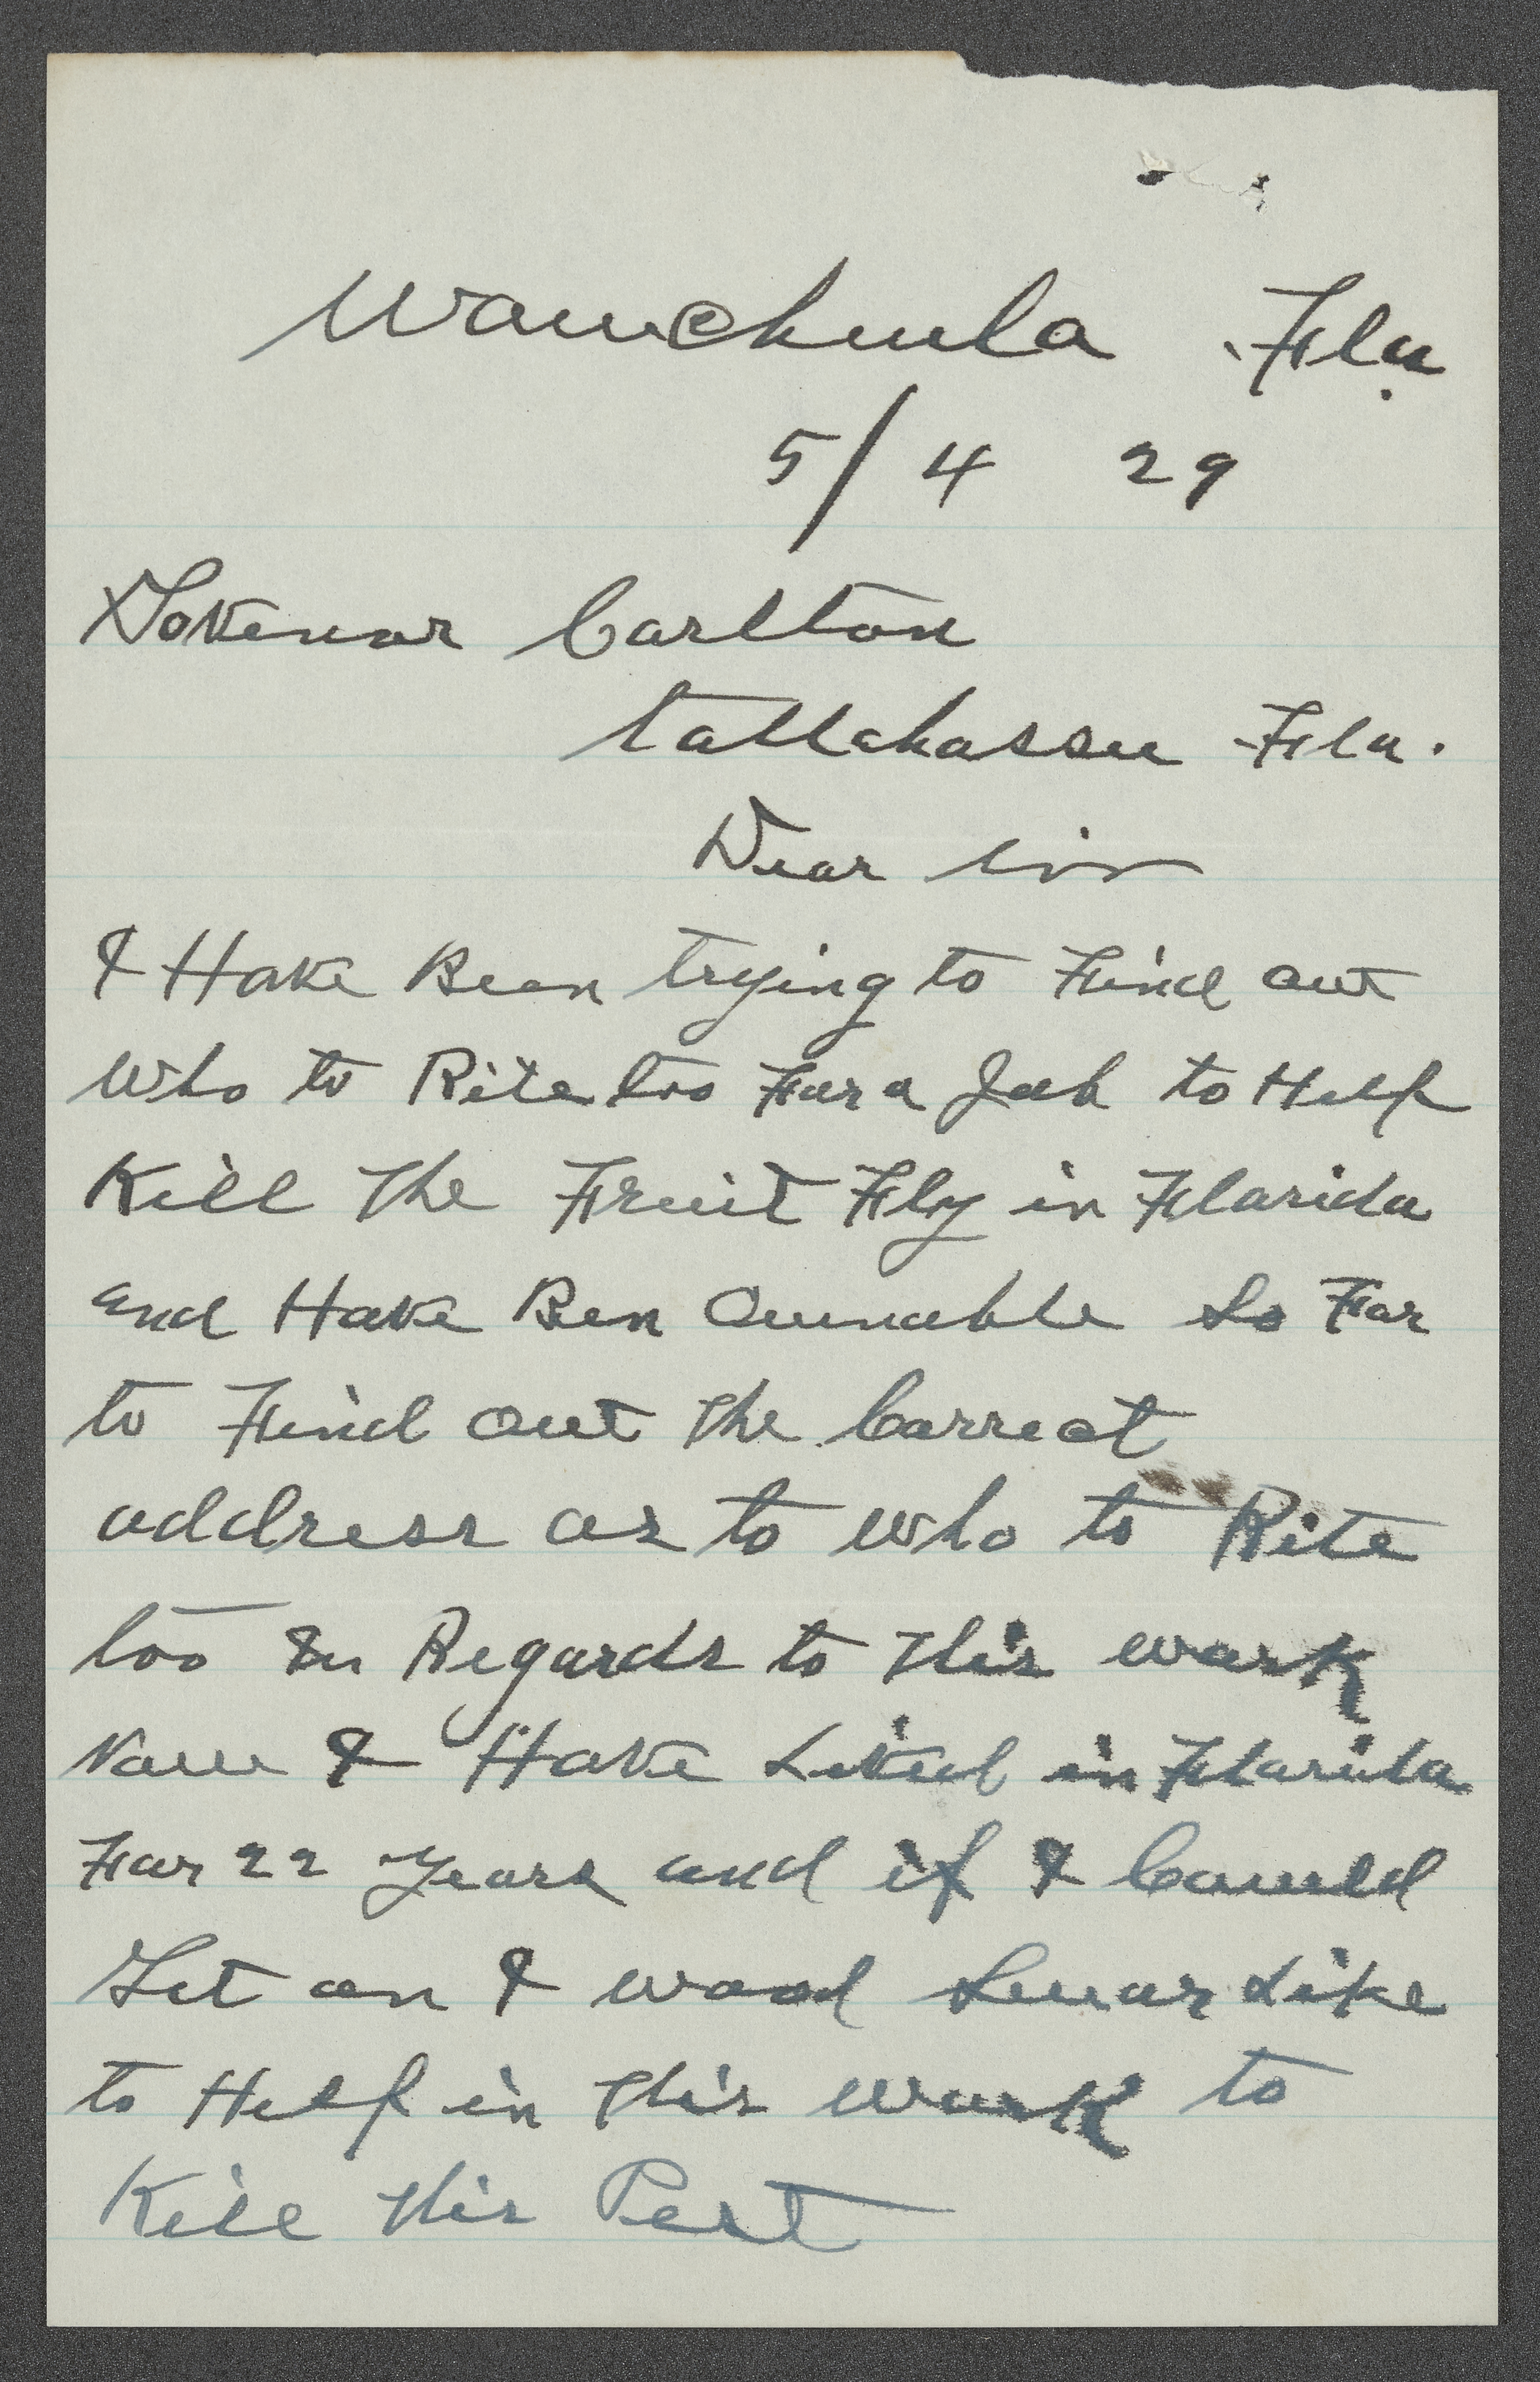 Wauchula Fla.
5/4 29
Govenor Carlton
tallahassee Fla.
Dear sir
I Have Been trying to Find out
Who to Rite too For a Job to Help
Kill The Fruit Fly in Florida
and Have Ben Ounable So Far
to Find out The Correct
address as to who to Rite
too In Regards to This work
Now I Have Lived in Florida
For 22 years and if I Could
Get on I wood Suear Like
to Help in This work to
Kill This Pest